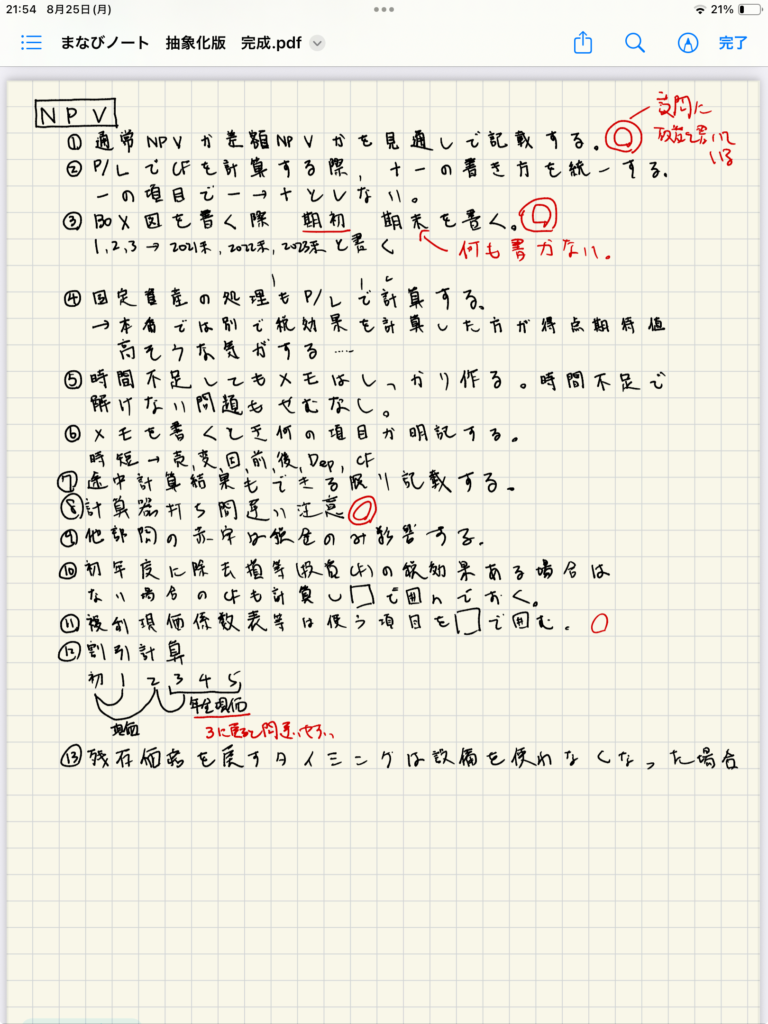 21:54 8月25日(月)
21%
まなびノート 抽象化版 完成.pdf
完了
NPV
① 通常NPVか差額NPVかを見通しで記載する。
設問に
書いて
いる
② P/LでCFを計算する際、+-の書き方を統一する。
-の項目で-→+としない。
③ BOX図を書く際 期初 期末を置く。
1,2,3→2021末,2022末,2023末と書く
何も書かない。
④ 固定資産の処理もP/Lで計算する。
→本番では別で税効果を計算した方が得点期待値
高そうな気がする……
⑤ 時間不足してもメモはしっかり作る。時間不足で
解けない問題もせむなし。
⑥ メモを書くとき何の項目か明記する。
時短→売,変,固,前,後,Dep,CF
⑦ 途中計算結果もできる限り記載する。
⑧ 計算器打ち間違い注意
⑨ 他部門の赤字は税金のみ影響する。
⑩ 初年度に除去損等(投資CF)の税効果ある場合は
ない場合のCFも計算し□で囲んでおく。
⑪ 複利現価係数表等は使う項目を□で囲む。
⑫ 割引計算
初 1 2 3 4 5
年金現価
現価
3に戻ると間違いやすい
⑬ 残存価額を戻すタイミングは設備を使わなくなった場合